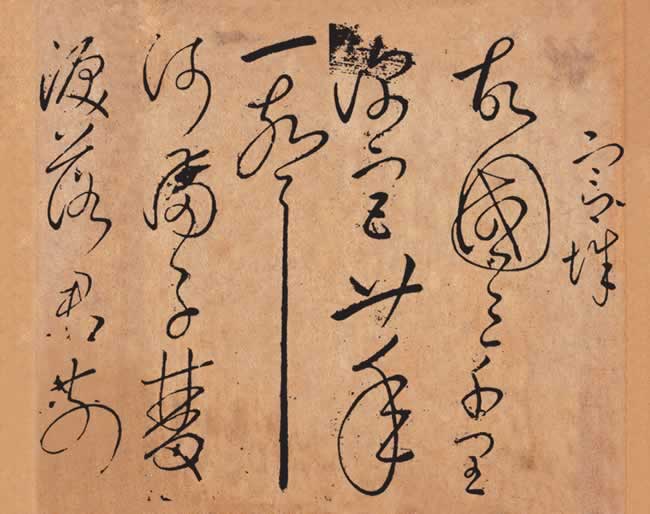 故國三千里
深宮廿年
一聲
何滿子雙
淚落君前